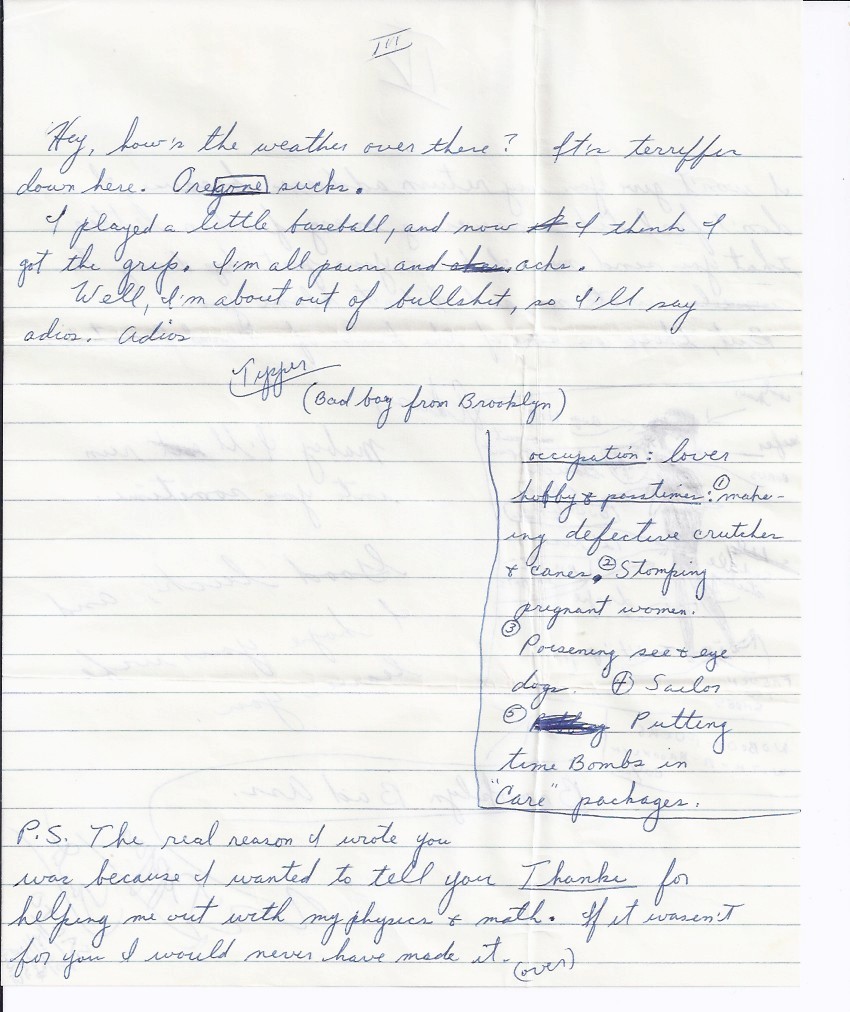 III
Hey, how's the weather over there? It's terriffer
down here. Oregone sucks.
I played a little baseball, and now I think I
got the grip. I'm all pains and achs.
Well, I'm about out of bullshit, so I'll say
adios. Adios
Tipper
(Bad boy from Brooklyn)
occupation: lover
hobby & passtimes: ① make-
ing defective crutches
& canes. ② Stomping
pregnant women.
③ Poisening see & eye
dogs. ④ Sailor
⑤ Putting
time Bombs in
"Care" packages.
P.S. The real reason I wrote you
was because I wanted to tell you Thanks for
helping me out with my physics & math. If it wasen't
for you I would never have made it.
(over)